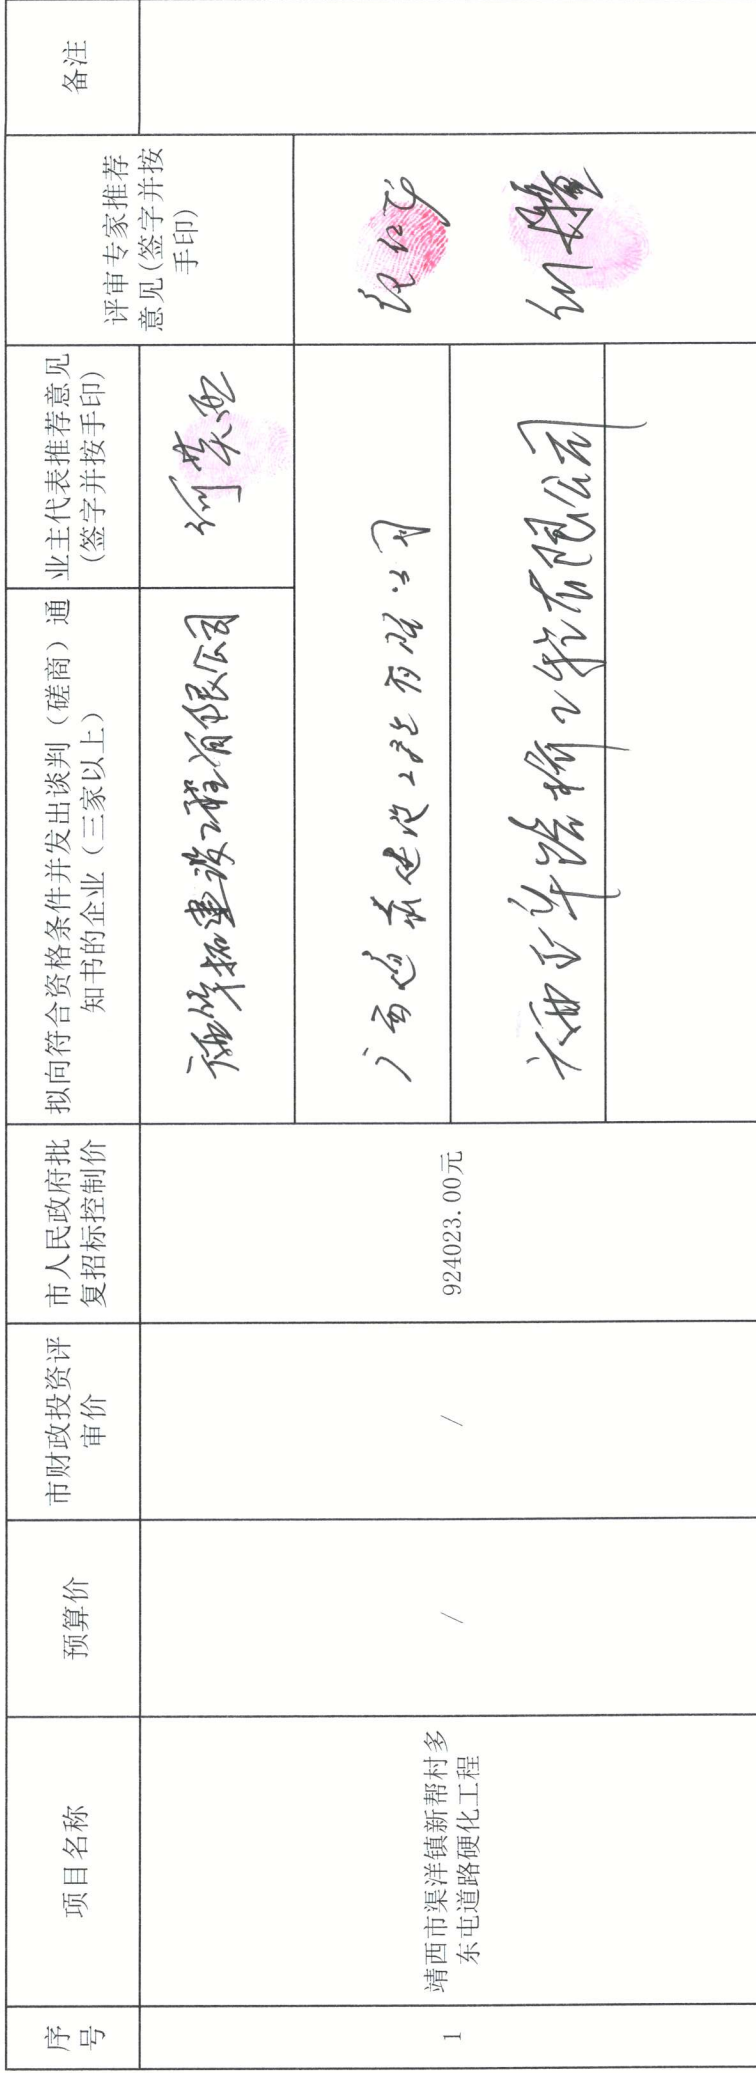 序
号
项目名称
预算价
市财政投资评
审价
市人民政府批
复招标控制价
拟向符合资格条件并发出谈判（磋商）通
知书的企业（三家以上）
业主代表推荐意见
(签字并按手印)
评审专家推荐
意见(签字并按
手印)
备注
1
靖西市渠洋镇新帮村多
东屯道路硬化工程
/
/
924023.00元
拓建设工程有限公司
广西 建设工程有限公司
路桥工程有限公司